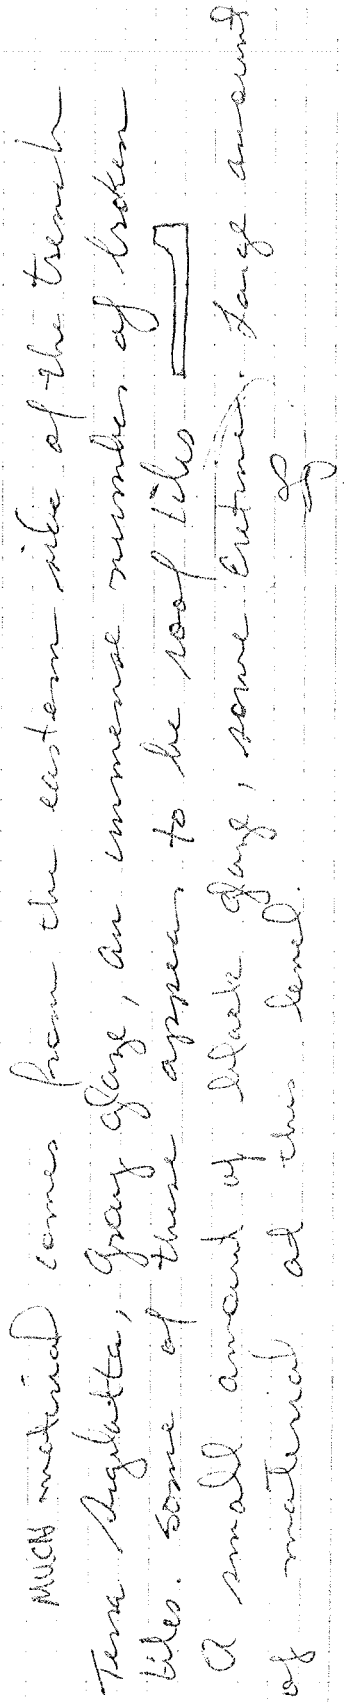 MUCH material comes from the eastern side of the trench
Terra sigilatta, Gray glaze, an immense number of broken
tiles. Some of these appears to be roof tiles
A small amount of black glaze, some. Large amount
of material at this level.